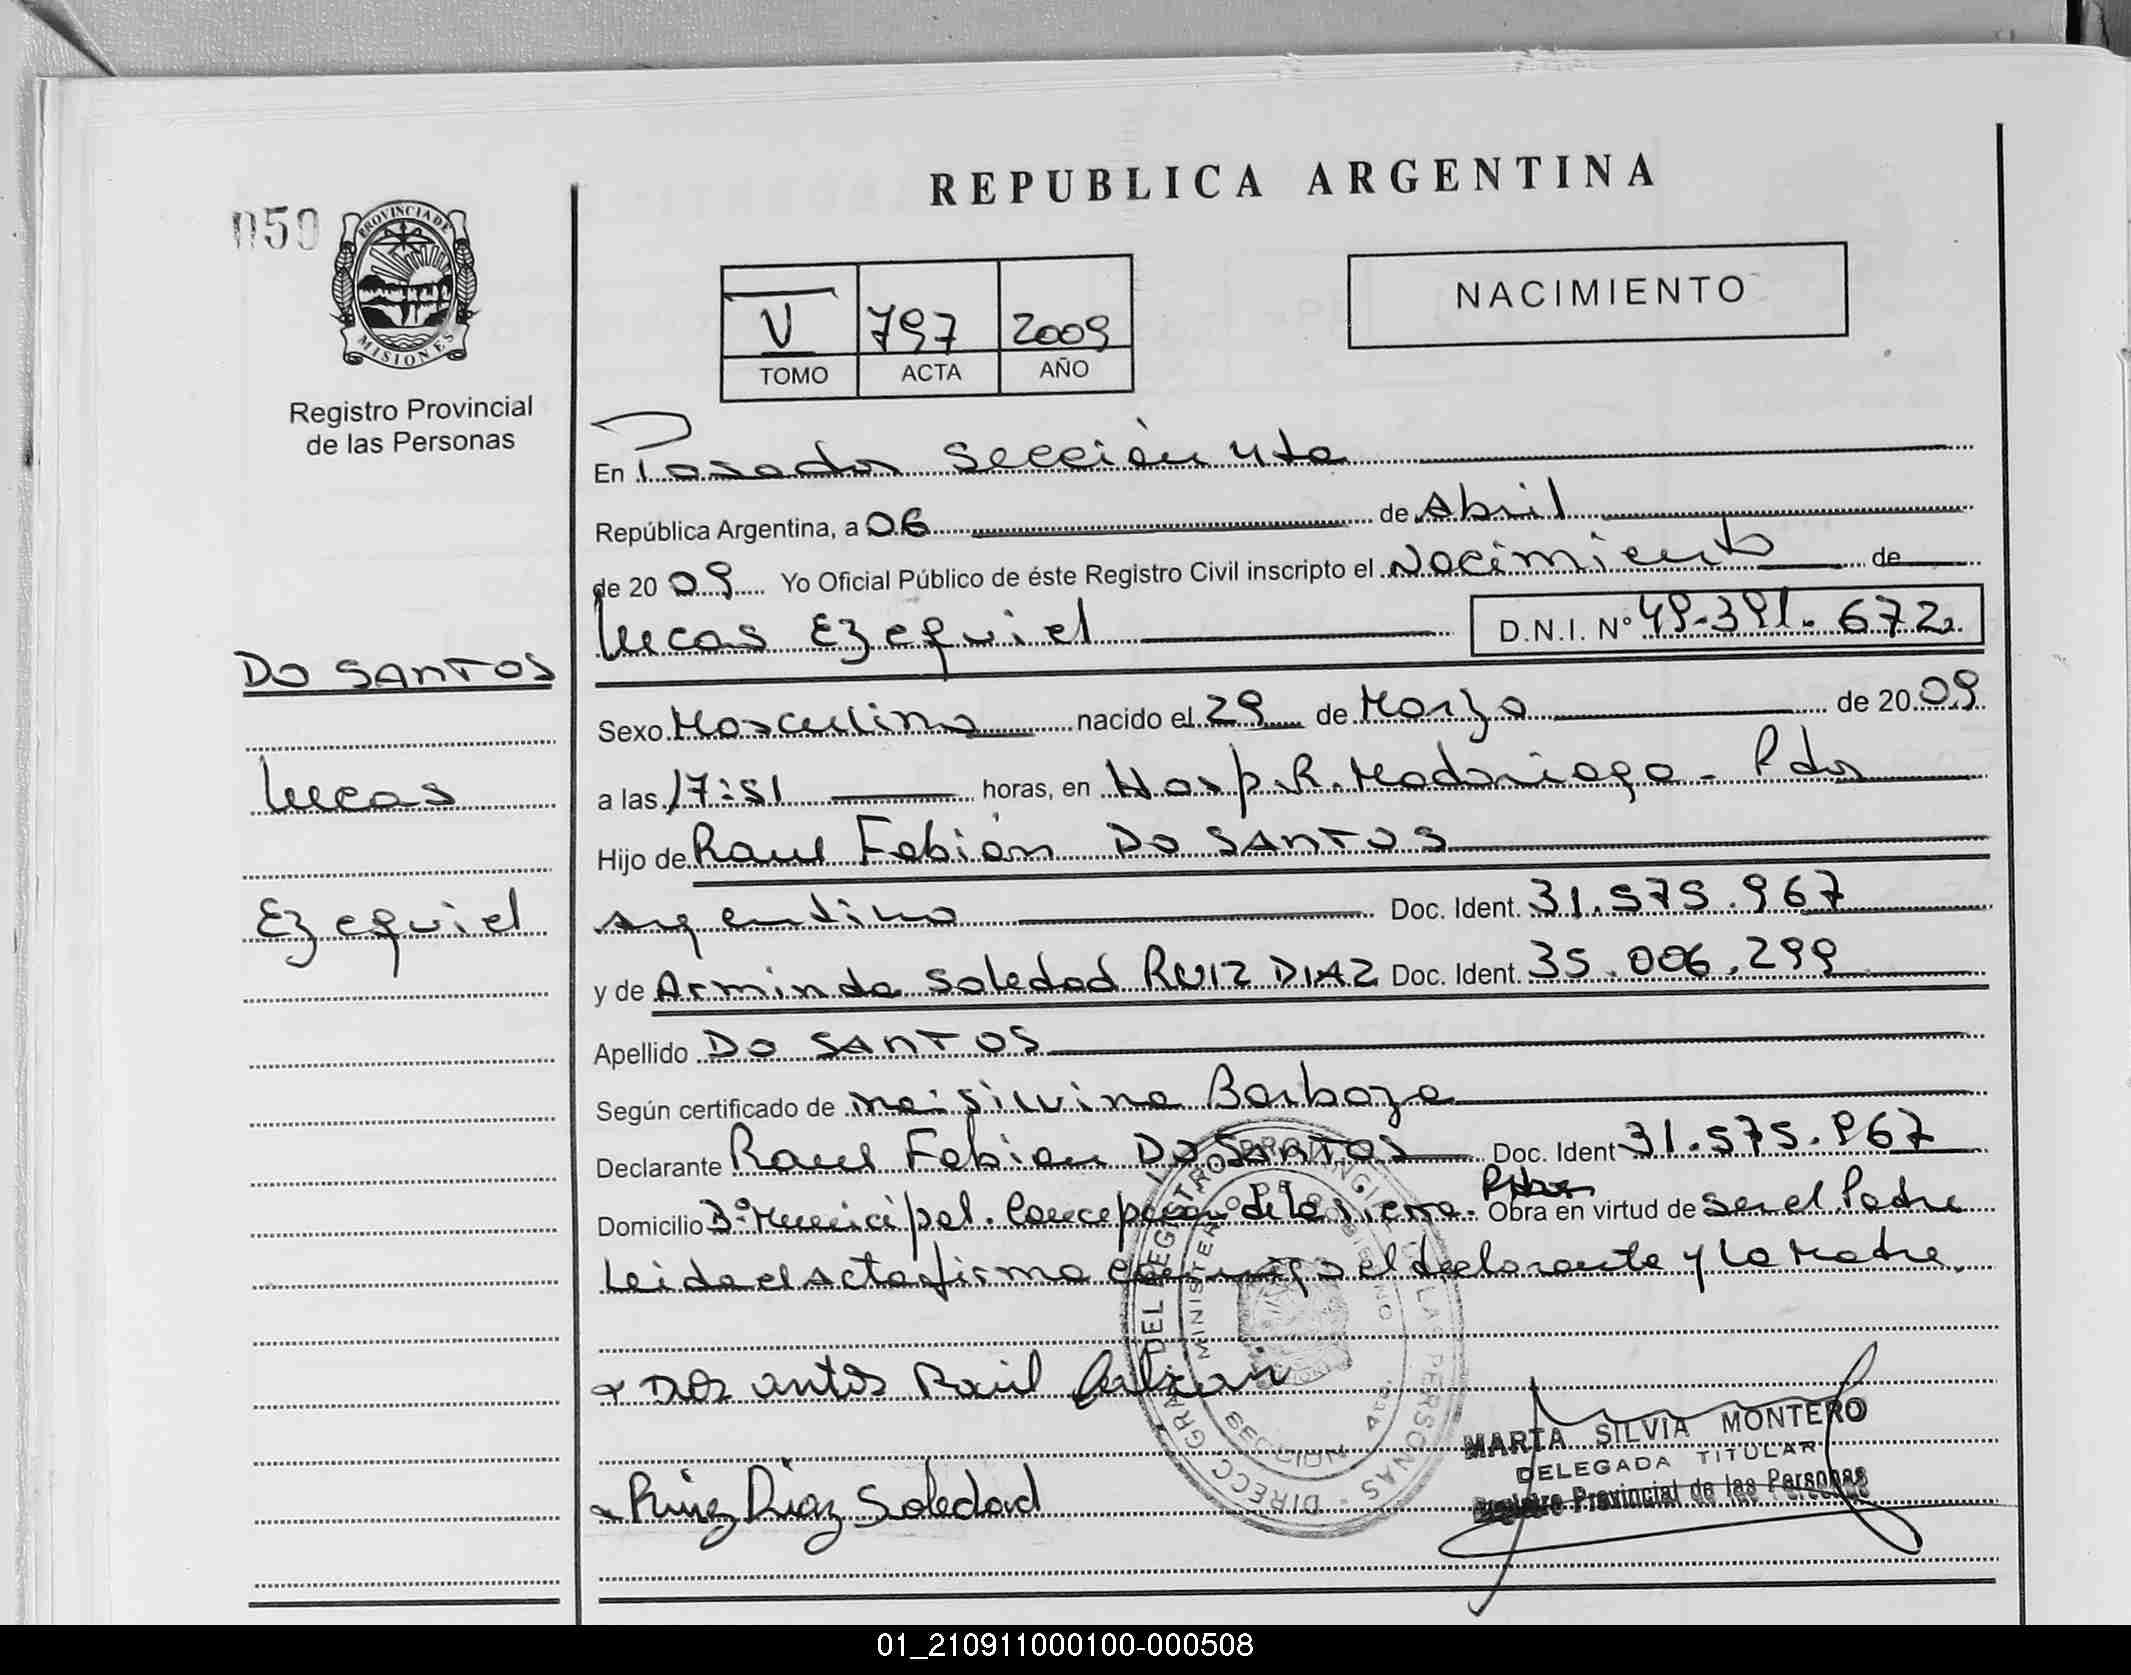 REPUBLICA ARGENTINA
050
PROVINCIA DE
MISIONES
Registro Provincial
de las Personas
NACIMIENTO
V 797 2009
TOMO ACTA AÑO
En Posadas Sección 4ta
República Argentina, a 06 de Abril
de 2009 Yo Oficial Público de éste Registro Civil inscripto el Nacimiento de
Lucas Ezequiel D.N.I. Nº 49.391.672
DO SANTOS
Lucas
Ezequiel
Sexo Masculino nacido el 29 de Marzo de 2009
a las 17:51 horas, en Hosp. R. Madariaga - Pdas
Hijo de Raul Fabián DO SANTOS
argentino Doc. Ident. 31.575.967
y de Arminda Soledad RUIZ DIAZ Doc. Ident. 35.006.299
Apellido DO SANTOS
Según certificado de Silvina Barboza
Declarante Raul Fabian DO SANTOS Doc. Ident 31.575.967
Domicilio Bº Municipal. Concepción de la Sierra. Pdas Obra en virtud de ser el Padre
Leida el acta firma conmigo el declarante y la Madre.
Dos antos Raúl
Ruiz Diaz Soledad
MARTA SILVIA MONTERO
DELEGADA TITULAR
Registro Provincial de las Personas
01_210911000100-000508